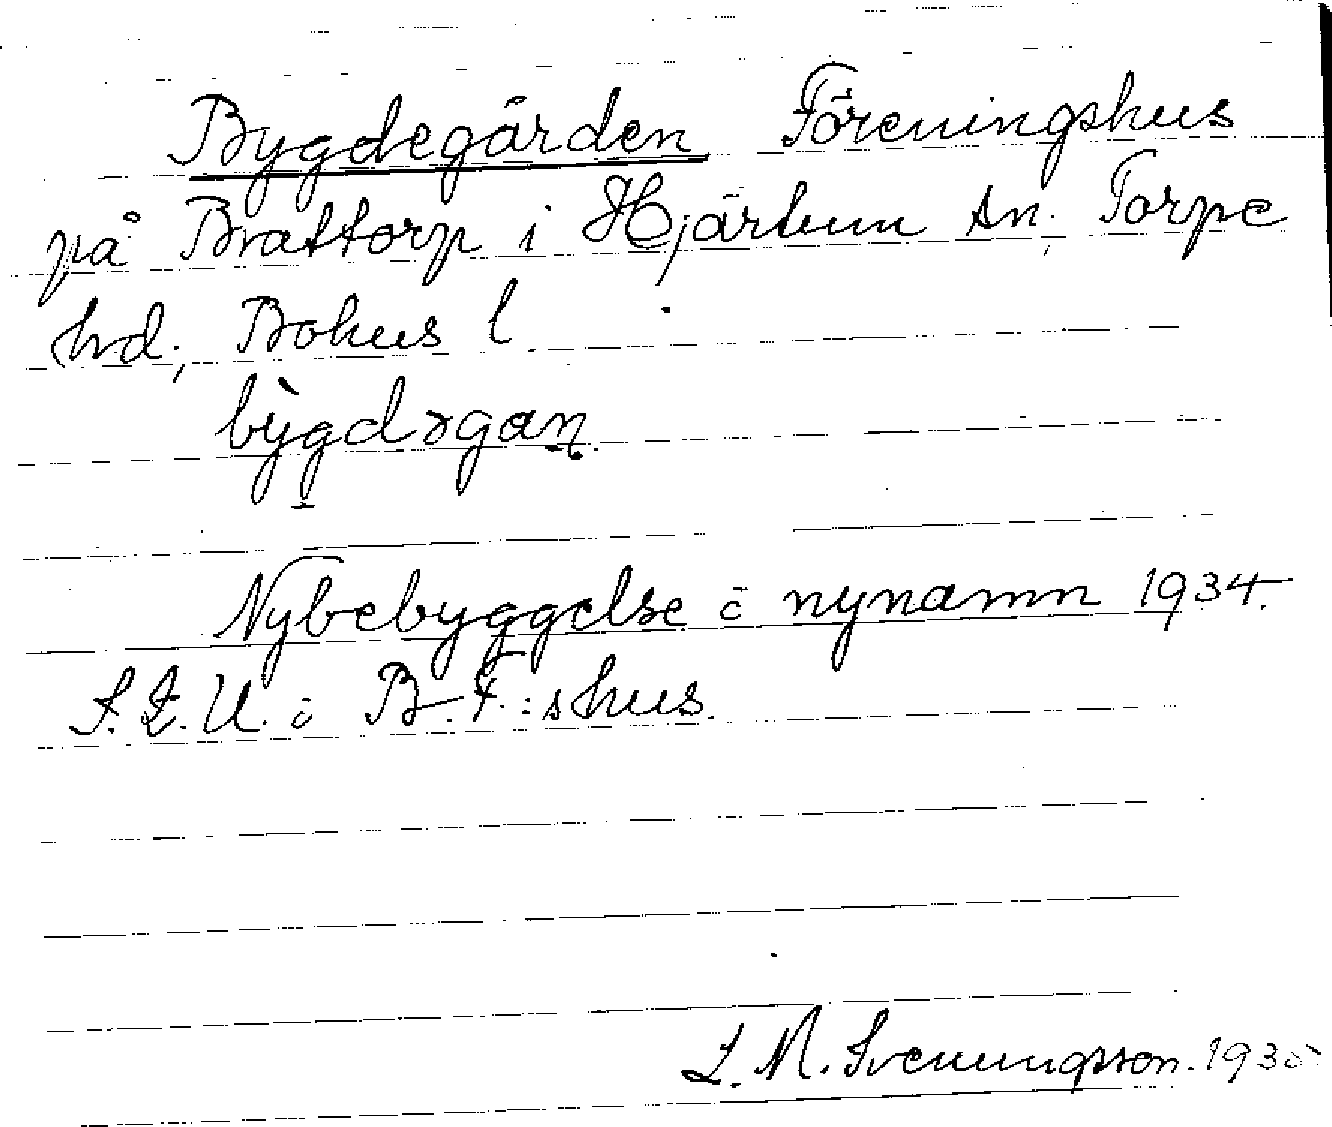 Bygdegården Föreningshus
på Brattorp i Hjärtum sn; Torpe
hd; Bohus l
bỳgdɤgaṇ
Nybebyggelse o nynamn 1934.
S.L.U. o B-F:shus.
L.M. Svenungsson. 1935